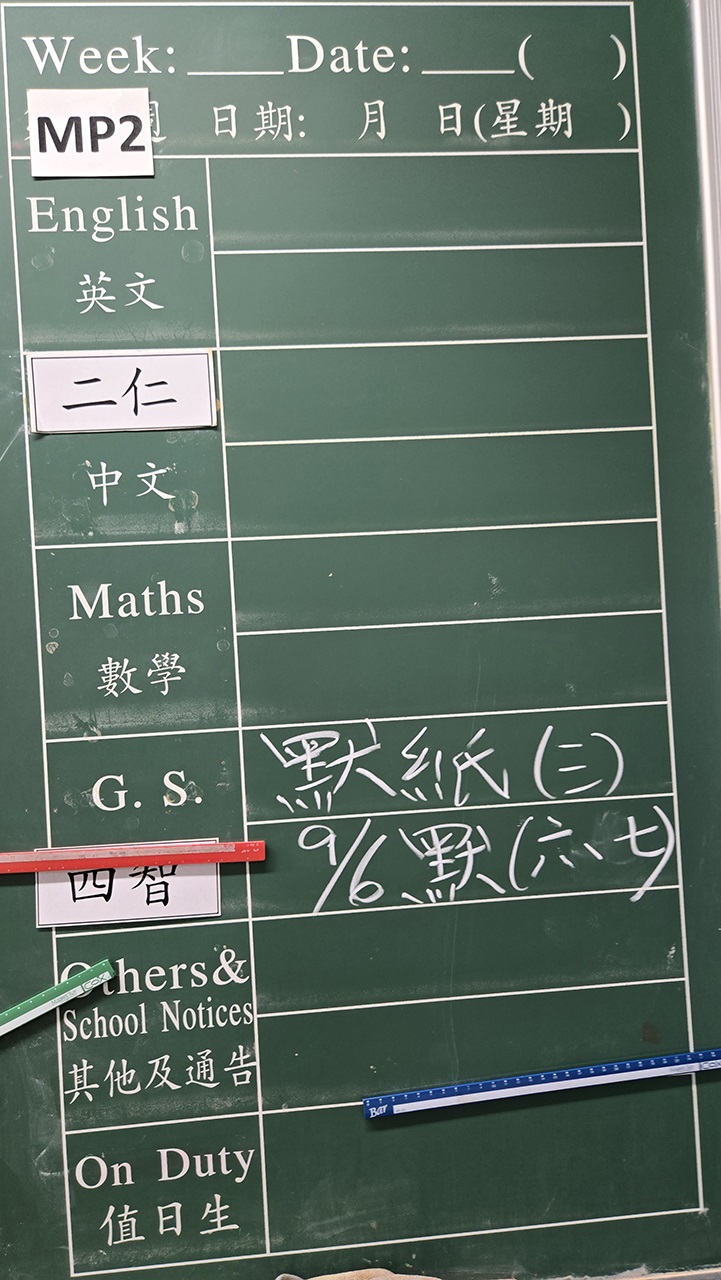 Week: Date: ( )
MP2 週 日期: 月 日(星期 )
English
英文
二仁
中文
Maths
數學
G. S.
默紙(三)
9/6默(六、七)
四智
Others&
School Notices
其他及通告
Bar
On Duty
值日生